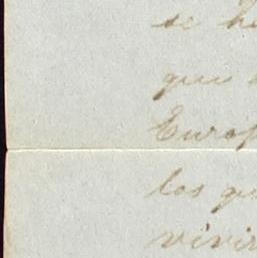 se h
que
Europ
los qu
vivir